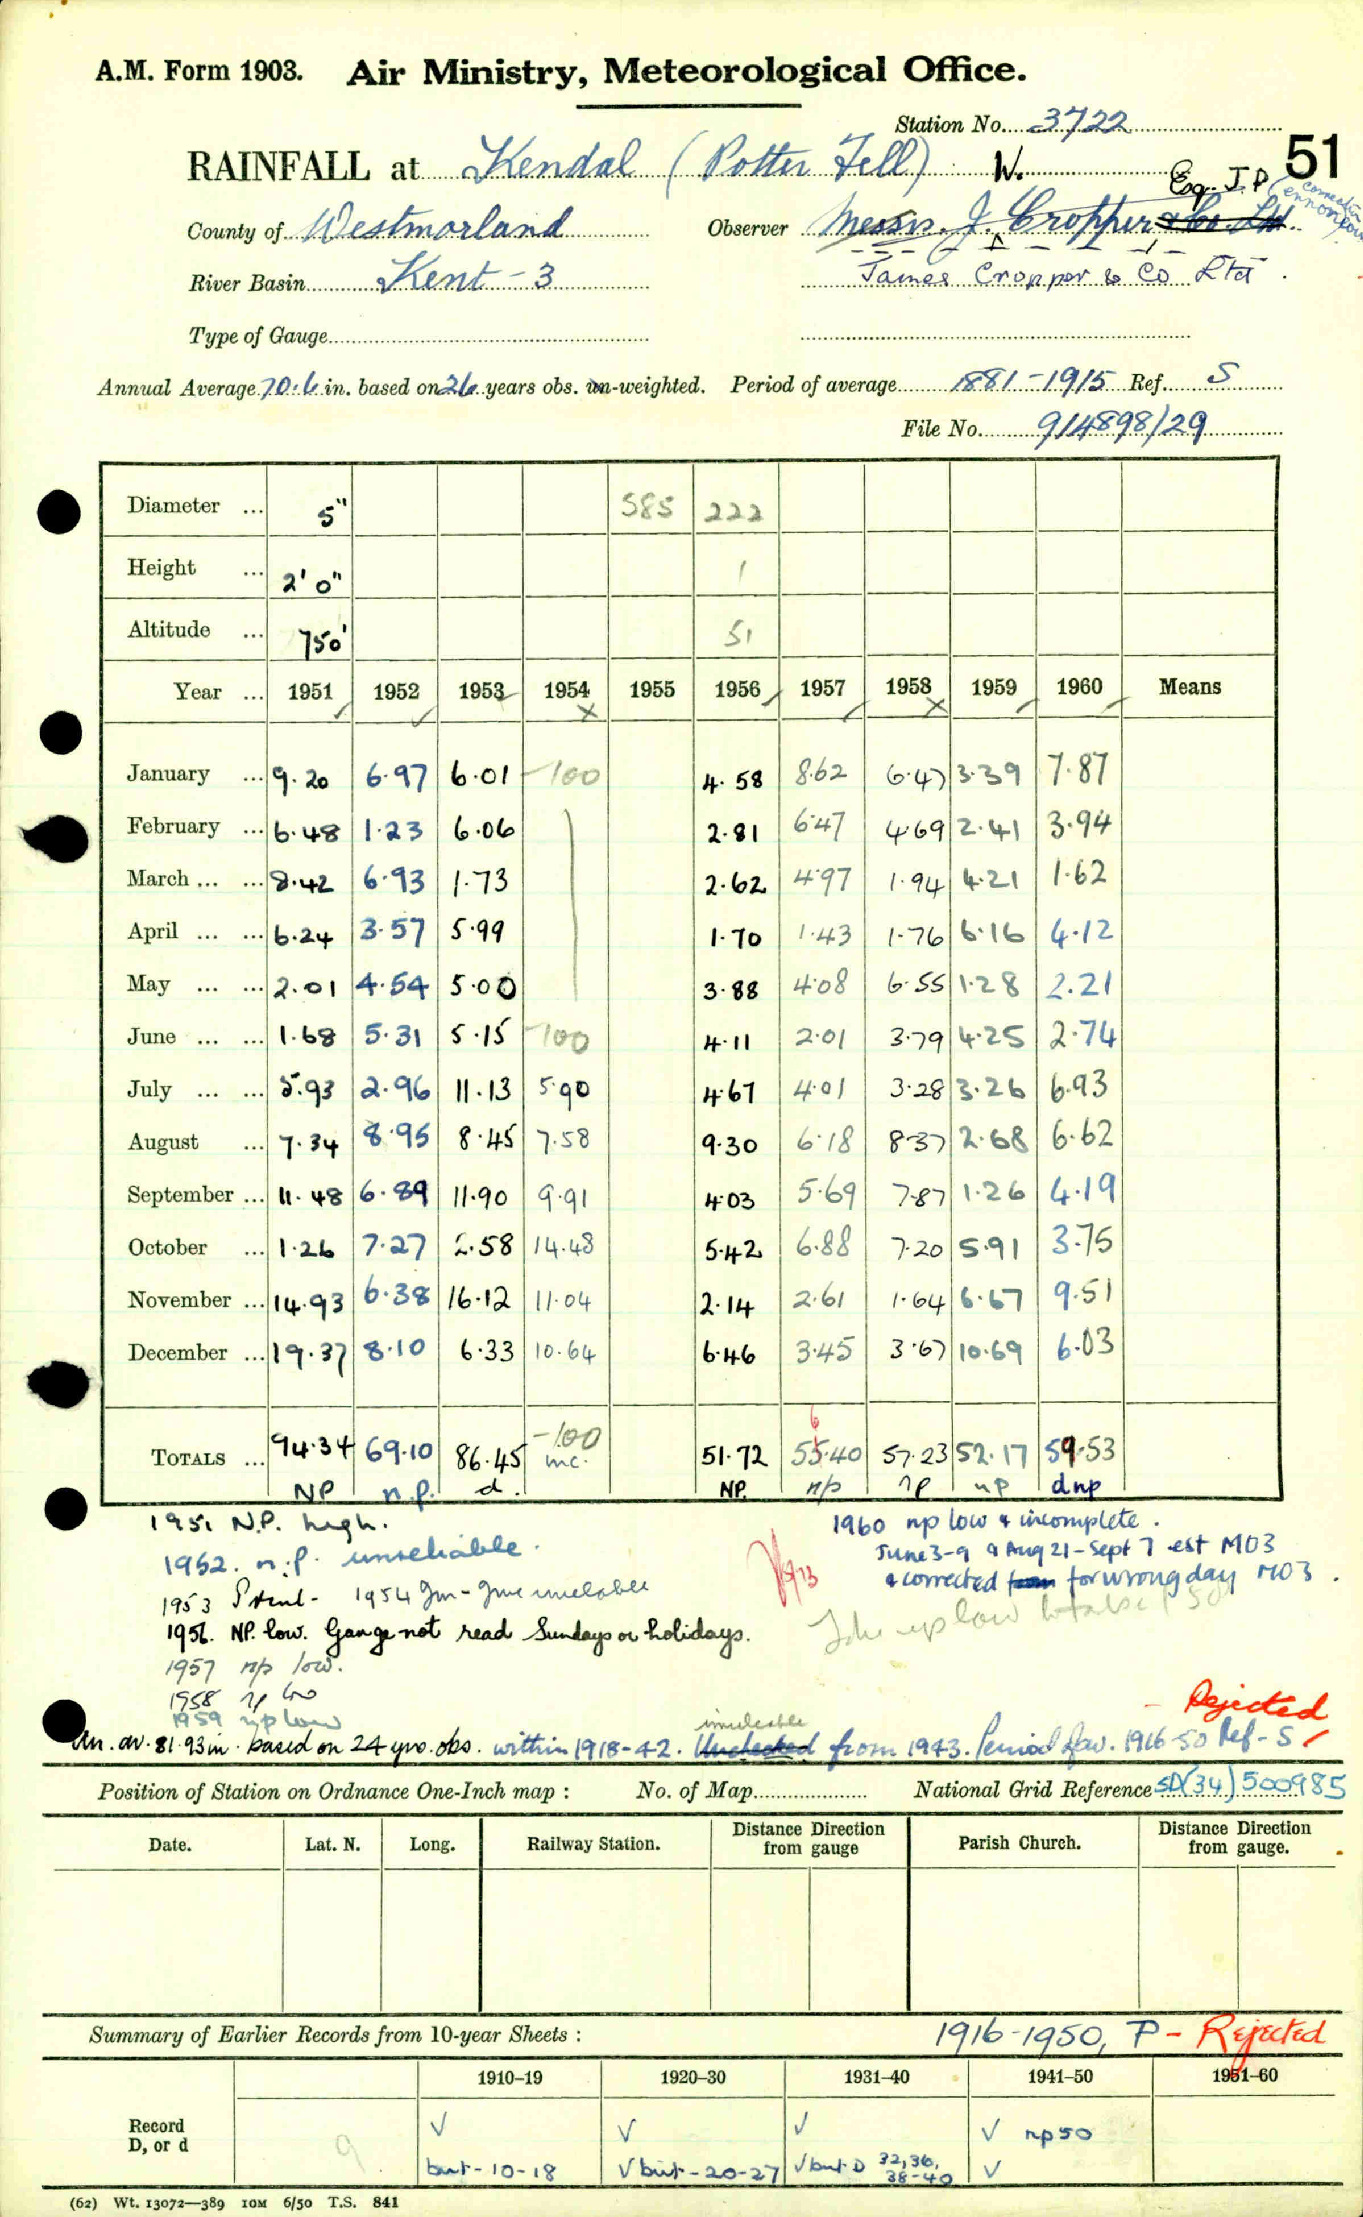 A.M. Form 1903. Air Ministry, Meteorological Office.
Station No. 3722
51
RAINFALL at Kendal (Potter Fell) W.
Esq. J.P. (correction
County of Westmorland Observer Messrs. J. Cropper & Co. Ltd.
River Basin Kent - 3 James Cropper & Co Ltd.
Type of Gauge
Annual Average 70.6 in. based on 26 years obs. un-weighted. Period of average 1881-1915 Ref. S
File No. 914898/29
Diameter ... 5" 585 222
Height ... 2' 0" 1
Altitude ... 750' 51
Year ... 1951 1952 1953 1954 1955 1956 1957 1958 1959 1960 Means
January ... 9.20 6.97 6.01 -100 4.58 8.62 6.47 3.39 7.87
February ... 6.48 1.23 6.06 2.81 6.47 4.69 2.41 3.94
March ... ... 8.42 6.93 1.73 2.62 4.97 1.94 4.21 1.62
April ... ... 6.24 3.57 5.99 1.70 1.43 1.76 6.16 4.12
May ... ... 2.01 4.54 5.00 3.88 4.08 6.55 1.28 2.21
June ... ... 1.68 5.31 5.15 -100 4.11 2.01 3.79 4.25 2.74
July ... ... 5.93 2.96 11.13 5.90 4.67 4.01 3.28 3.26 6.93
August ... 7.34 8.95 8.45 7.58 9.30 6.18 8.37 2.68 6.62
September ... 11.48 6.89 11.90 9.91 4.03 5.69 7.87 1.26 4.19
October ... 1.26 7.27 2.58 14.48 5.42 6.88 7.20 5.91 3.75
November ... 14.93 6.38 16.12 11.04 2.14 2.61 1.64 6.67 9.51
December ... 19.37 8.10 6.33 10.64 6.46 3.45 3.67 10.69 6.03
6
TOTALS ... 94.34 69.10 86.45 -100 inc. 51.72 55.40 57.23 52.17 59.53
NP n.p. d. NP. n/p np np dnp
1951 N.P. high.
1960 np low & incomplete.
1952. n.p. unreliable.
June 3-9 & Aug 21-Sept 7 est MO3
1953 1954 Jan-June unreliable
& corrected from for wrong day MO3.
1956. NP. low. Gauge not read Sundays or holidays.
np low
1957 n/p low.
1958 np low
1959 np low
Rejected
unreliable
An. av. 81.93 in. based on 24 yrs. obs. within 1918-42. Unchecked from 1943. Period fav. 1916-50 Ref-S
Position of Station on Ordnance One-Inch map : No. of Map National Grid Reference SD(34)500985
Date. Lat. N. Long. Railway Station. Distance Direction from gauge Parish Church. Distance Direction from gauge.
Summary of Earlier Records from 10-year Sheets : 1916-1950, P - Rejected
1910-19 1920-30 1931-40 1941-50 1951-60
Record D, or d 9 √ √ √ √ np50
but-10-18 √ but-20-27 √ but D 32,36, 38-40 √
(62) Wt. 13072—389 10M 6/50 T.S. 841